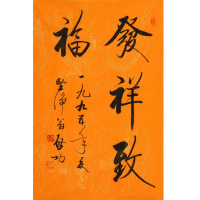 發祥致
福
一九九五年夏
坚净翁启功